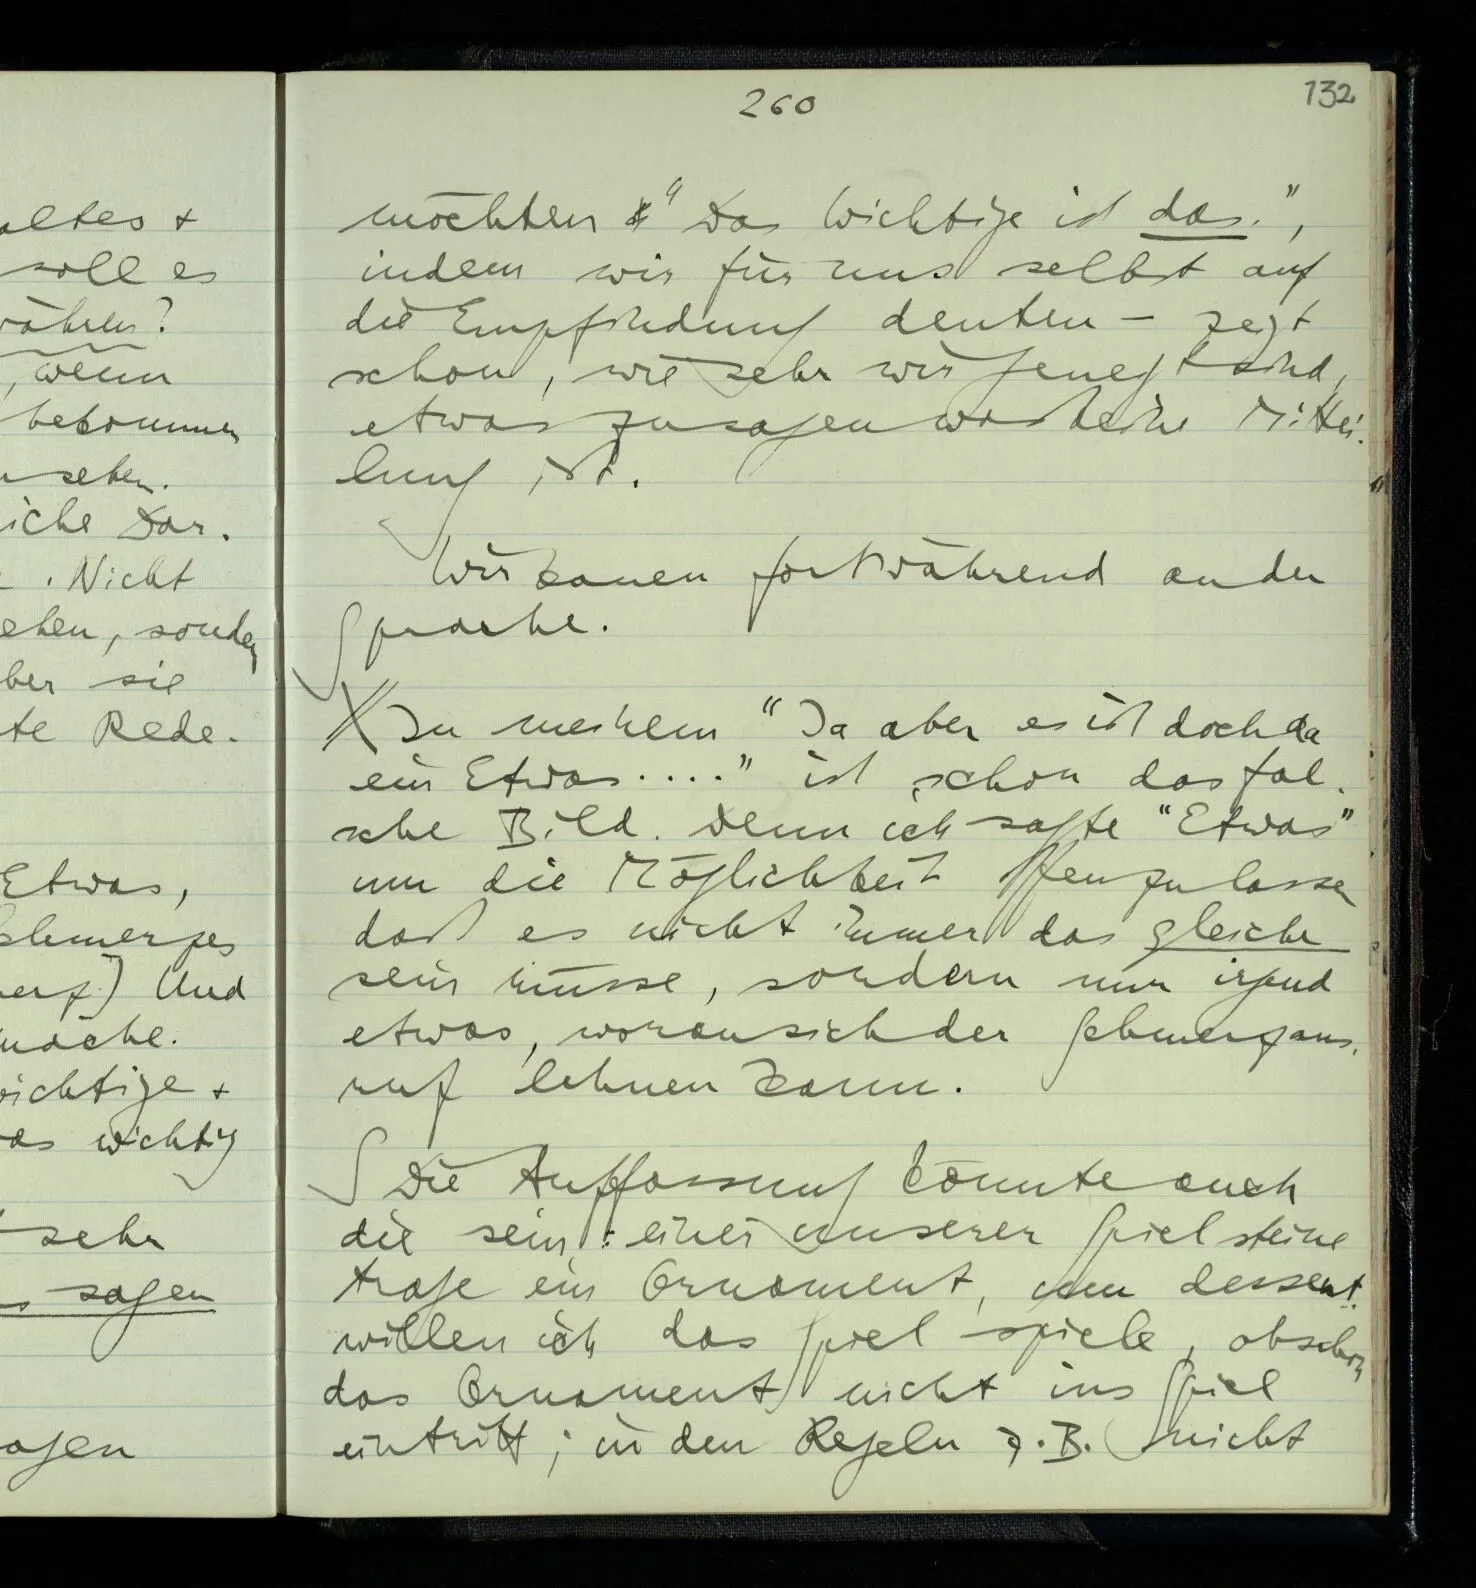 260
132
möchten "Das Wichtige ist das.",
indem wir für uns selbst auf
die Empfindung deuten – zeigt
schon, wie sehr wir geneigt sind,
etwas zu sagen was keine Mittei-
lung ist.
Wir kauen fortwährend an der
Sprache.
In meinem "Ja aber es ist doch da
ein Etwas...." ist schon das fal-
sche Bild. Denn ich sagte "Etwas"
um die Möglichkeit offenzulassen
daß es nicht immer das gleiche
sein müsse, sondern nur irgend
etwas, woran sich der Schmerzaus-
ruf lehnen kann.
Die Auffassung könnte auch
die sein: einer unserer Spielsteine
trage ein Ornament, um dessent-
willen ich das Spiel spiele, obschon
das Ornament nicht ins Spiel
eintritt; in den Regeln z.B. nicht
altes +
soll es
währen?
, wenn
bekommen
sehen.
iche Dar-
. Nicht
ehen, sondern
ber sie
te Rede.
Etwas,
chmerzes
erz) Und
mache.
wichtige +
as wichtig
sehr
s sagen
agen